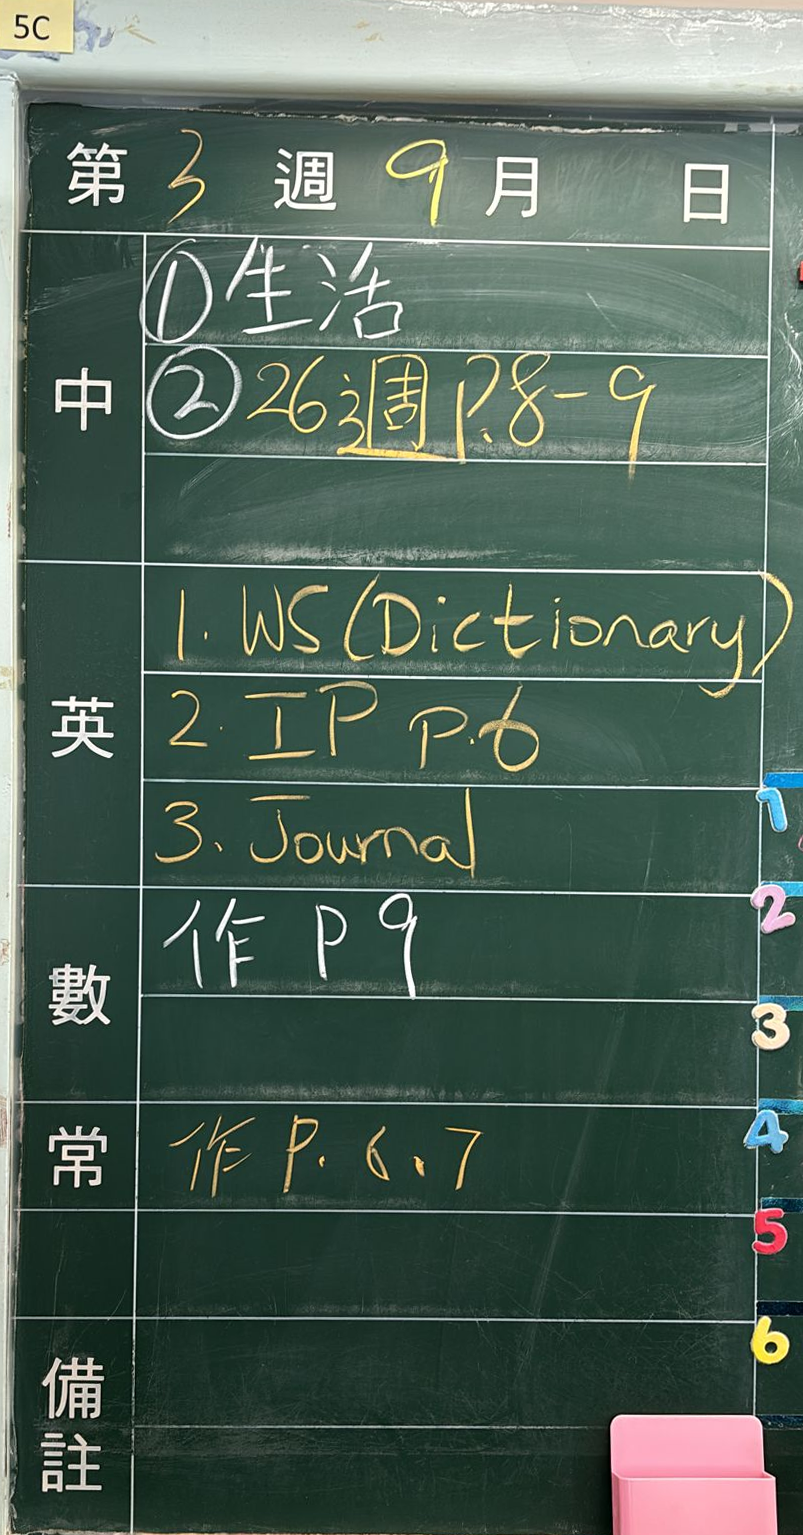 5C
第 3 週 9 月 日
中
① 生活
② 26週 P.8-9
英
1. WS (Dictionary)
2. IP P.6
3. Journal
數
作 P 9
常
作 P. 6、7
備註
1
2
3
4
5
6